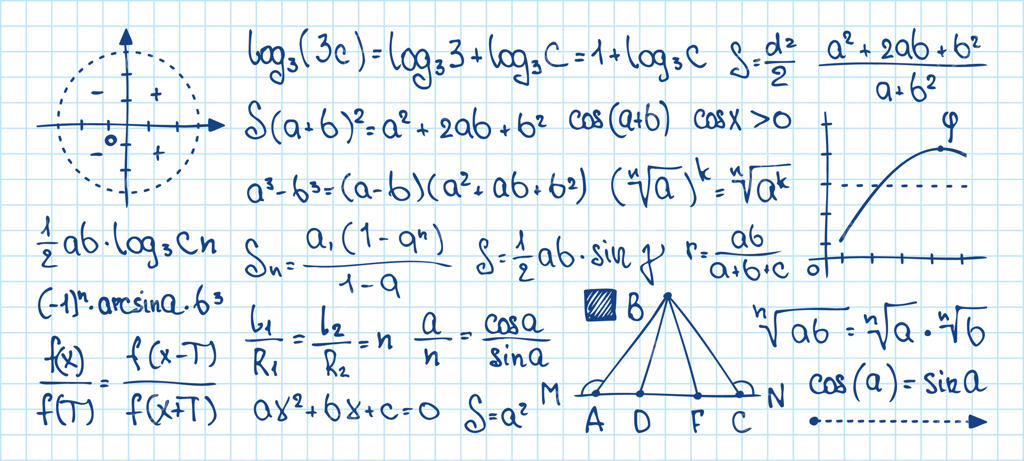 log₃(3c)=log₃3+log₃C=1+log₃C
S=d²/2
(a²+2ab+b²)/(a+b²)
- +
o
- +
S(a+b)²=a²+2ab+b²
cos(a+b)
cosx>0
φ
o
a³-b³=(a-b)(a²+ab+b²)
(ⁿ√a)ᵏ=ⁿ√aᵏ
½ab·log₃Cn
Sₙ=a₁(1-qⁿ)/1-q
S=½ab·sin γ
r=ab/(a+b+c)
(-1)ⁿ·arcsina·b³
l₁/R₁=l₂/R₂=n
a/n=cosa/sina
B
M N
A D F C
ⁿ√ab=ⁿ√a·ⁿ√b
f(x)/f(T)=f(x-T)/f(x+T)
ax²+bx+c=0
S=a²
cos(a)=sina